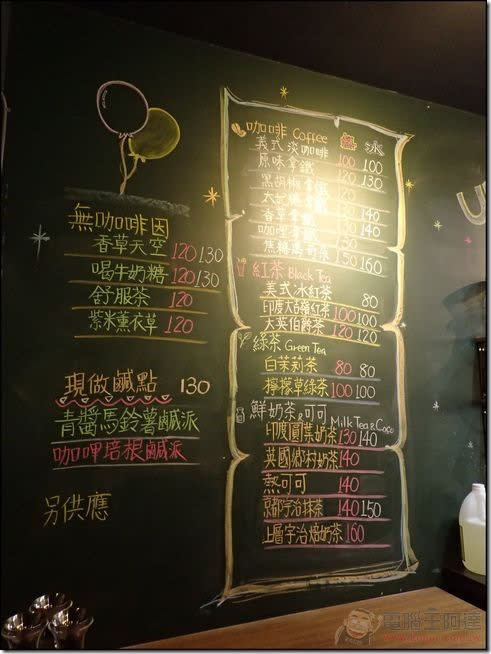 無咖啡因
香草天空 120 130
喝牛奶糖 120 130
舒服茶 120
紫米薰衣草 120
現做鹹點 130
青醬馬鈴薯鹹派
咖哩培根鹹派
另供應
咖啡 Coffee 熱 冰
義式淡咖啡 100 100
原味拿鐵 120 130
黑胡椒拿鐵 120
太妃糖拿鐵
香草拿鐵 140
咖哩拿鐵
焦糖瑪奇朵 150 160
紅茶 Black Tea
美式冰紅茶 80
印度大吉嶺紅茶 100 100
大英伯爵茶 120 120
綠茶 Green Tea
白茉莉茶 80 80
檸檬草綠茶 100 100
鮮奶茶&可可 Milk Tea & Coco
印度圓葉奶茶 130 140
英國鄉村奶茶 140
熱可可 140
京都宇治抹茶 140 150
上層宇治焙奶茶 160
電腦王阿達